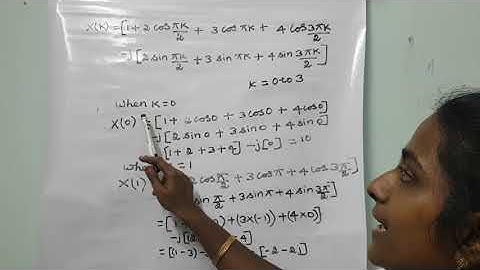 X(K) = [1+2 cos πK/2 + 3 cos πK + 4 cos 3πK/2]
-j[2 sin πK/2 + 3 sin πK + 4 sin 3πK/2]
K = 0 to 3
when K=0
X(0) = [1+ 2 cos0 + 3 cos0 + 4 cos0]
-j[2 sin 0 + 3 sin 0 + 4 sin 0]
[1+2+3+4] -j[0] = 10
= 1
X(1) 2 cos π/2 + 3 cos π + 4 cos 3π/2]
sin π/2 + 3 sin π + 4 sin 3π/2]
=[1+ 0) + (3x(-1)) + (4x0)]
-j[(2 4]
= [(1-3) - [-2-2j]